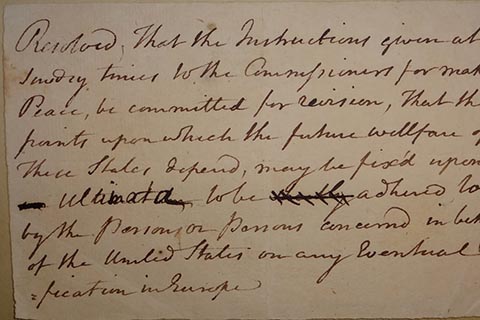 Resolved, That the Instructions given at
Sundry times to the Commissioners for mak
Peace, be committed for revision, That the
points upon which the future wellfare of
These States depend, may be fix'd upon
ultimata, to be adhered to
by the Person, or Persons concerned in beh
of the United States on any Eventual
=fication in Europe